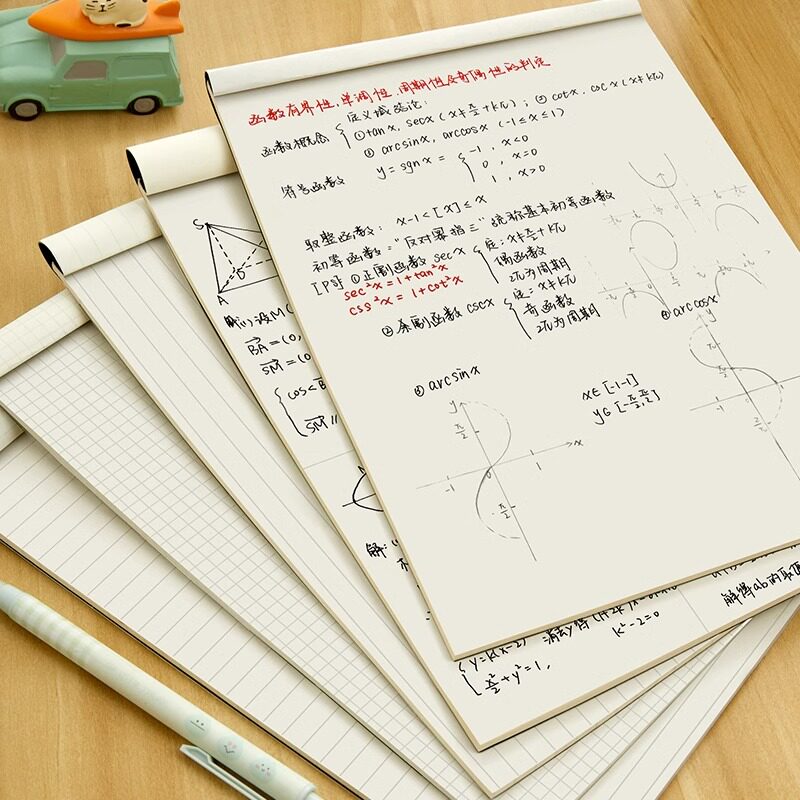 函数有界性,单调性,周期性及奇偶性的判定
函数概念 { 定义域结论:
①tanx, secx (x≠π/2+kπ) ; ② cotx, cscx (x≠kπ)
③ arcsinx, arccosx (-1≤x≤1)
符号函数 y = sgnx = { -1, x<0
0, x=0
1, x>0
取整函数: x-1<[x]≤x
初等函数="反对幂指三"统称基本初等函数
①正割函数 secx { 定: x≠π/2+kπ
偶函数
2π为周期
sec²x = 1+tan²x
css²x = 1+cot²x
②余割函数 cscx { 定: x≠kπ
奇函数
2π为周期
③ arcsinx
x∈[-1-1]
y∈[-π/2,π/2]
④ arccosx
y
π/2
-1
0
1
x
-π/2
y
C
D
A
我们设M(
BA=(0,
SM=(0,
{ cos<B
SM //
解:
{ y=k(x-2)
x²/2+y²=1,
消去y得
k²-2=0
解得ab的取值